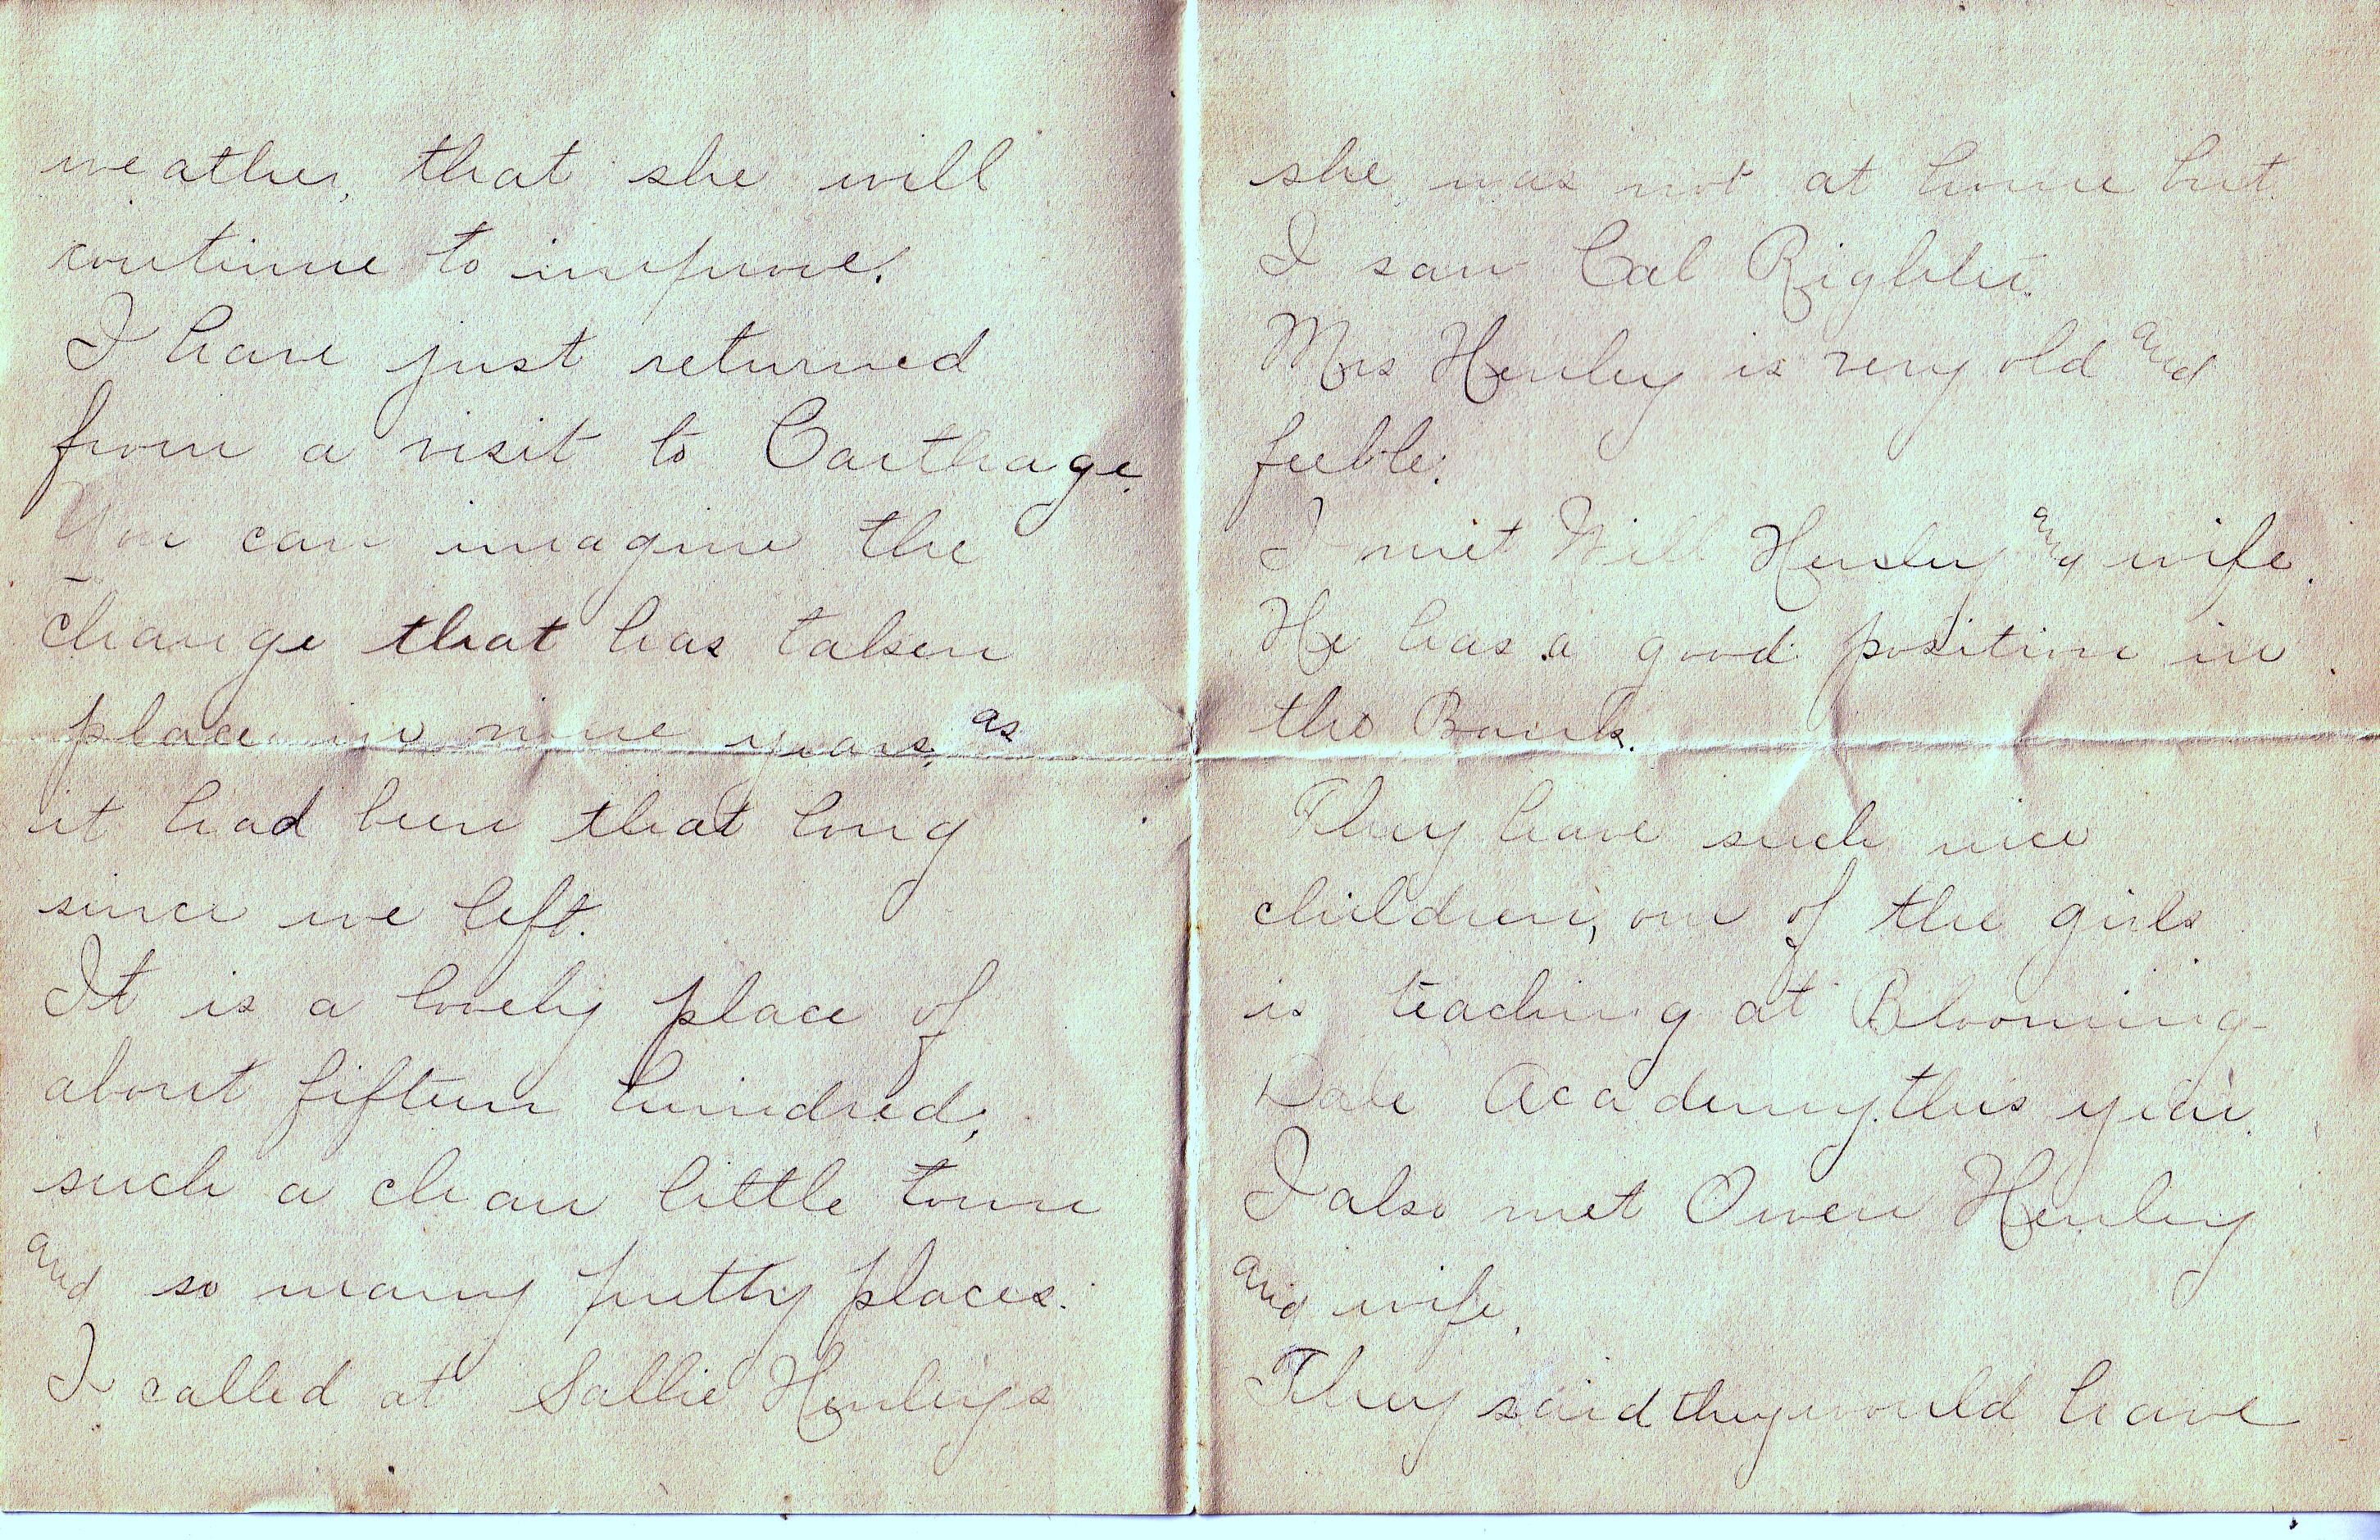 weather, that she will
continue to improve.
I have just returned
from a visit to Carthage.
You can imagine the
change that has taken
place in nine years, as
it had been that long
since we left.
It is a lovely place of
about fifteen hundred,
such a clean little town
and so many pretty places.
I called at Sallie Henleys
she was not at home but
I saw Cal Righter.
Mrs Henley is very old and
feeble.
I met Will Henley and wife.
He has a good position in
the Bank.
They have such nice
children, one of the girls
is teaching at Blooming-
Dale Academy this year.
I also met Owen Henley
and wife.
They said they would have